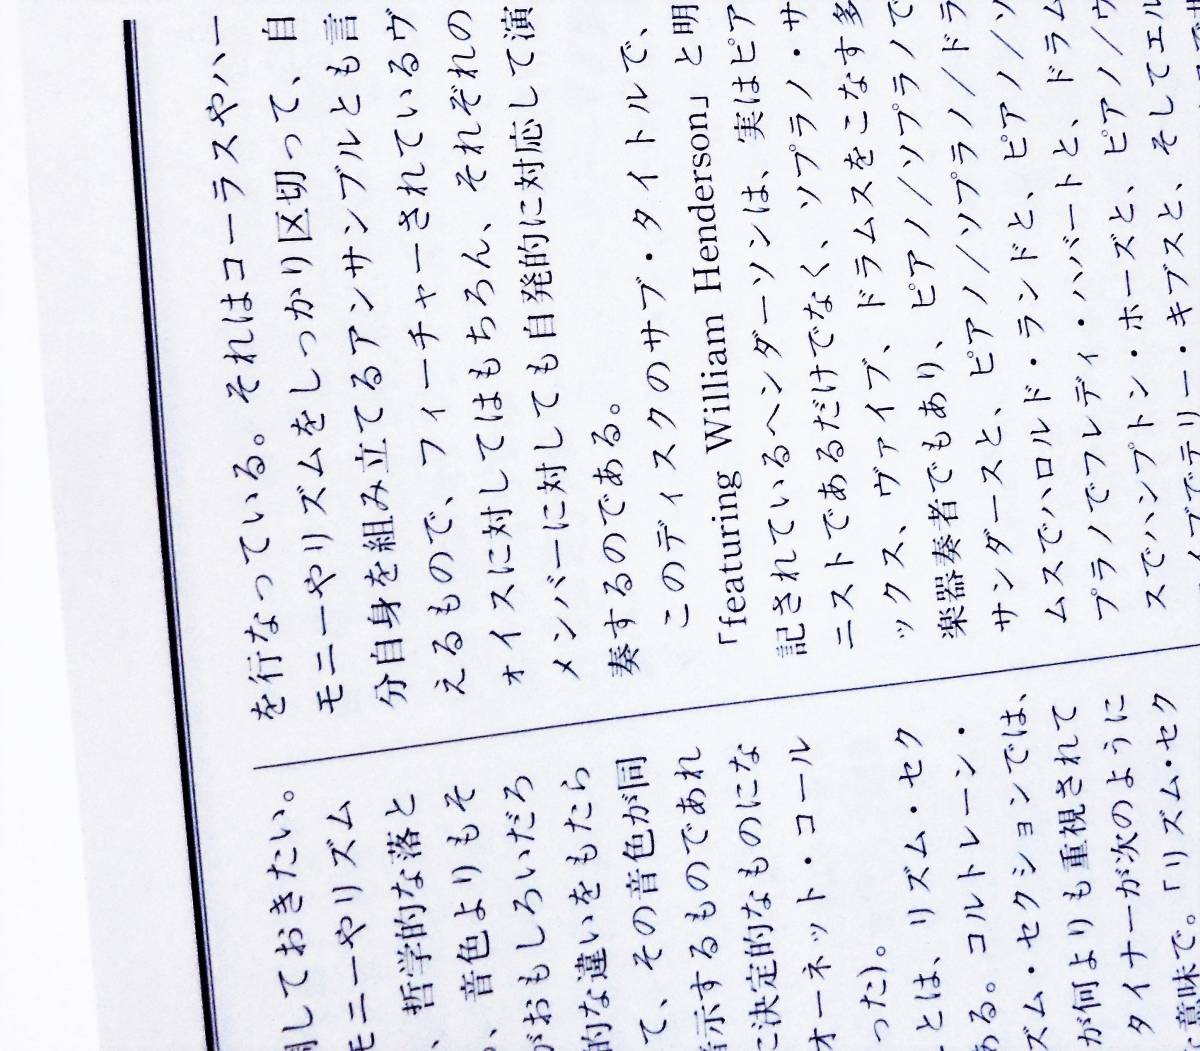 しておきたい。
モニーやリズム
、哲学的な落と
、音色よりもそ
がおもしろいだろ
的な違いをもたら
て、その音色が同
示するものであれ
に決定的なものにな
オーネット・コール
った)。
とは、リズム・セク
ある。コルトレーン・
ズム・セクションでは、
が何よりも重視されて
タイナーが次のように
意味で。「リズム・セク
を行なっている。それはコーラスやハー
モニーやリズムをしっかり区切って、自
分自身を組み立てるアンサンブルとも言
えるもので、フィーチャーされているヴ
ォイスに対してはもちろん、それぞれの
メンバーに対しても自発的に対応して演
奏するのである。
このディスクのサブ・タイトルで、
「featuring William Henderson」と明
記されているヘンダーソンは、実はピア
ニストであるだけでなく、ソプラノ・サ
ックス、ヴァイブ、ドラムスをこなす多
楽器奏者でもあり、ピアノ/ソプラノで
サンダースと、ピアノ/ソプラノ/ドラ
ムスでハロルド・ランドと、ピアノ/ソ
プラノでフレディ・ハバートと、ドラム
スでハンプトン・ホーズと、ピアノ/ヴ
ァイブでテリー・キブスと、そしてエル